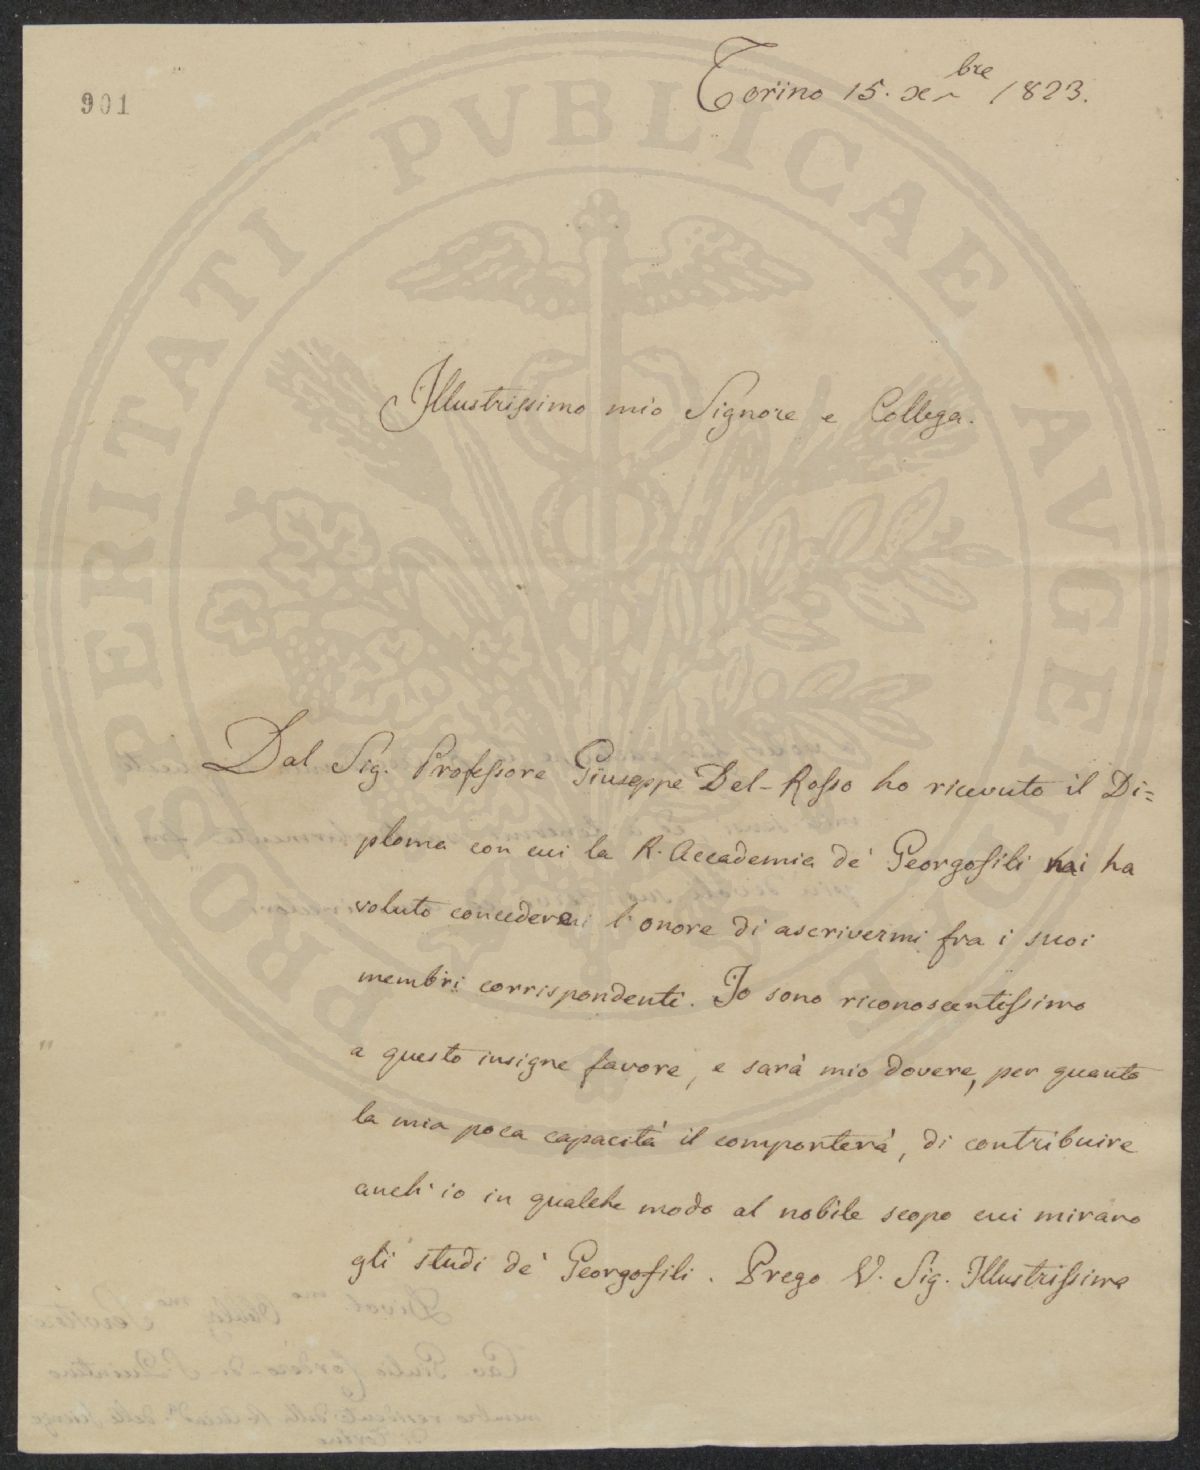 901
Torino 15. xbre 1823.
Illustrissimo mio Signore e Collega.
Dal Sig. Professore Giuseppe Del-Rosso ho ricevuto il Di=
ploma con cui la R. Accademia de' Georgofili mi ha
voluto concedermi l'onore di ascrivermi fra i suoi
membri corrispondenti. Io sono riconoscentissimo
a questo insigne favore, e sarà mio dovere, per quanto
la mia poca capacità il comporterà, di contribuire
anch'io in qualche modo al nobile scopo cui mirano
gli studi de' Georgofili. Prego V. Sig. Illustrissima
PROSPERITATI PVBLICAE AVGENDAE